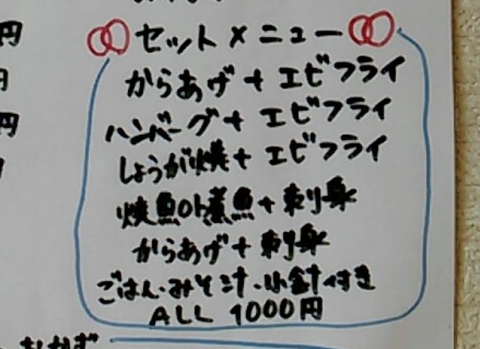 円
セットメニュー
円
からあげ+エビフライ
円
ハンバーグ+エビフライ
しょうが焼+エビフライ
焼魚or煮魚+刺身
からあげ+刺身
ごはん・みそ汁・小鉢付き
ALL 1000円
おかず